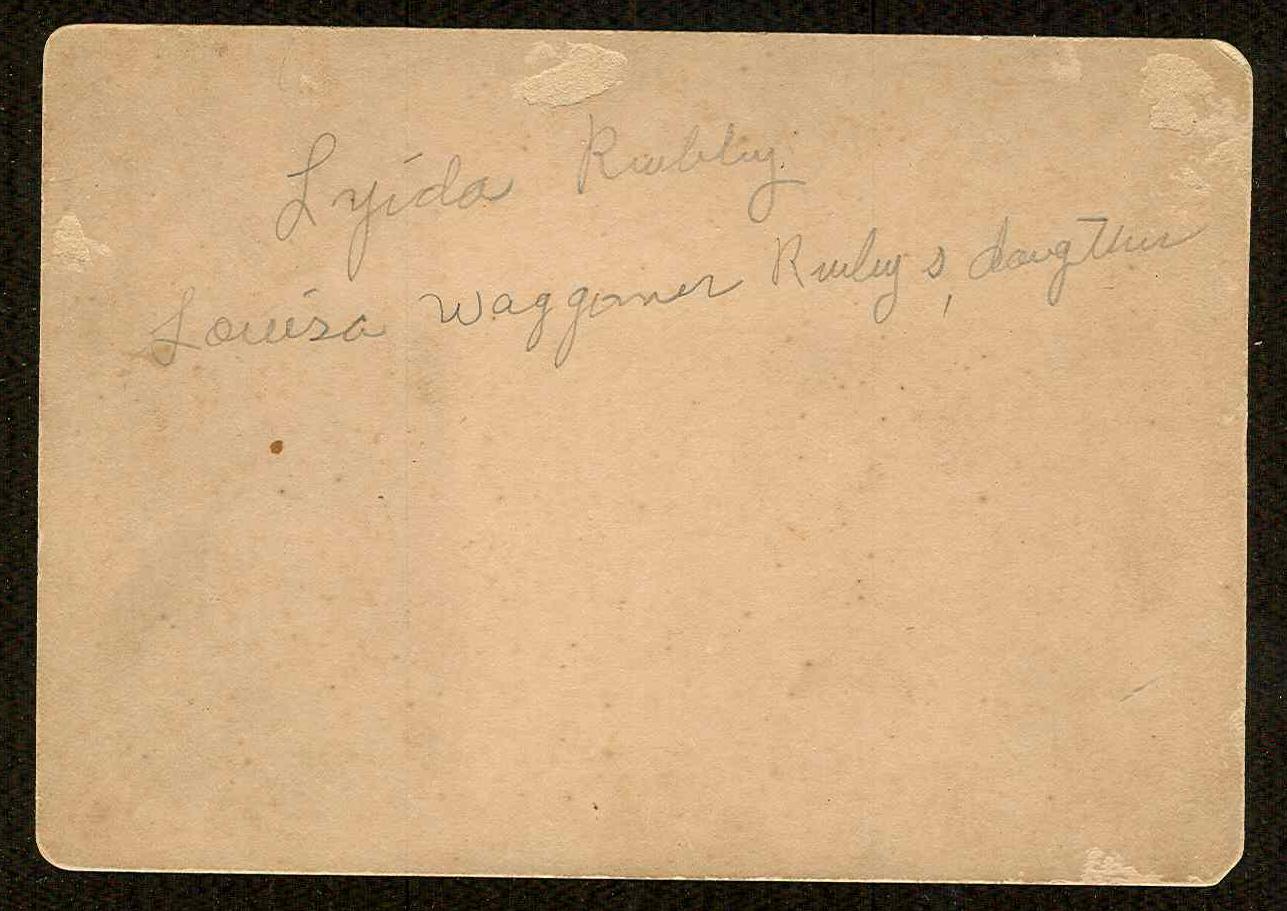 Lyida Rubley
Louisa Waggonner daugther